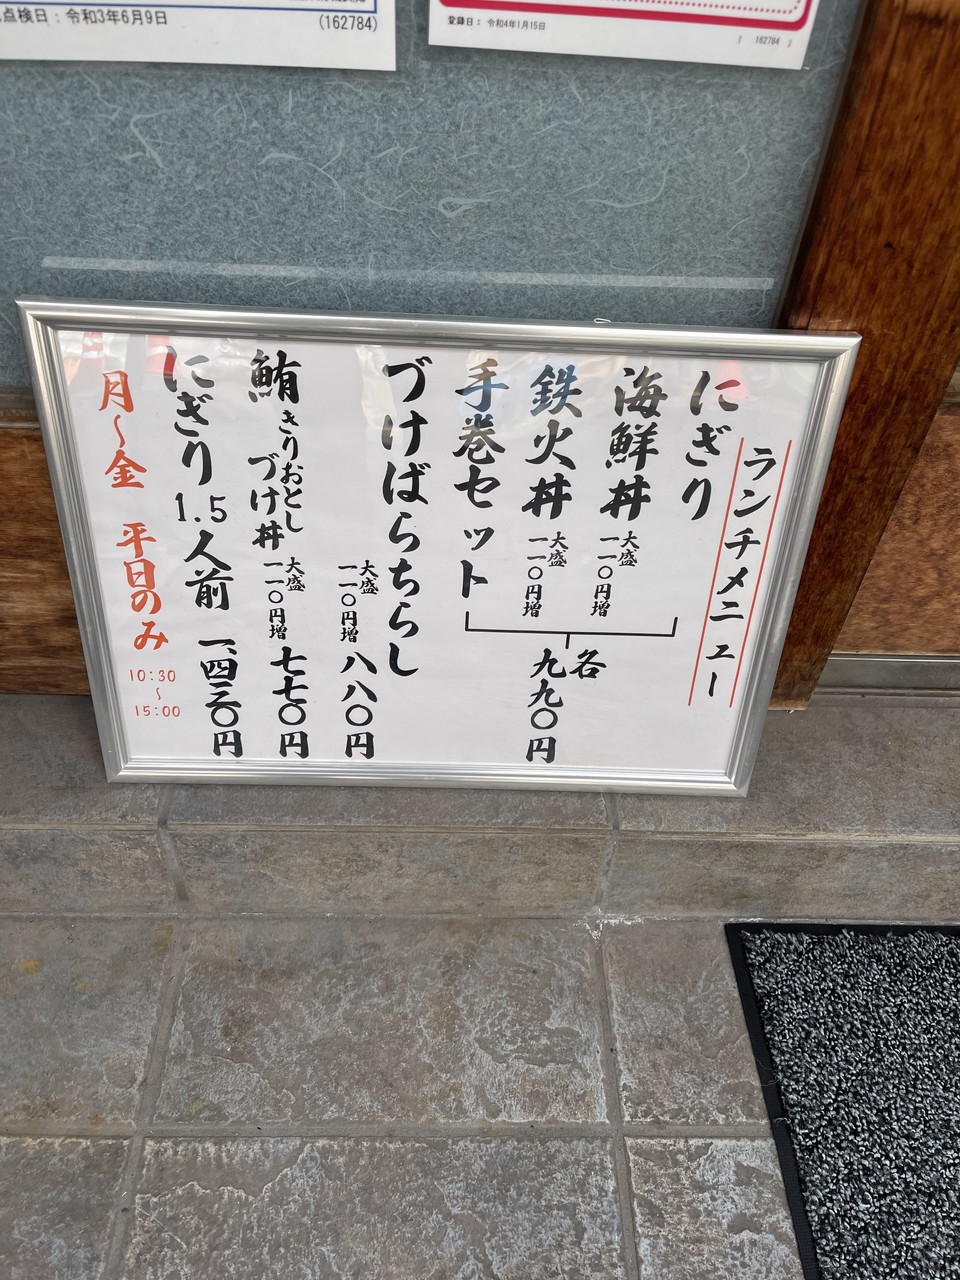 点検日：令和3年6月9日
(162784)
登録日：令和4年1月15日
( 162784 )
ランチメニュー
にぎり
海鮮丼 大盛一一〇円増
鉄火丼 大盛一一〇円増
手巻セット
各九九〇円
づけばらちらし
大盛一一〇円増 八八〇円
鮪きりおとしづけ丼 大盛一一〇円増 七七〇円
にぎり1.5人前 一、四三〇円
月〜金 平日のみ
10:30
〜
15:00